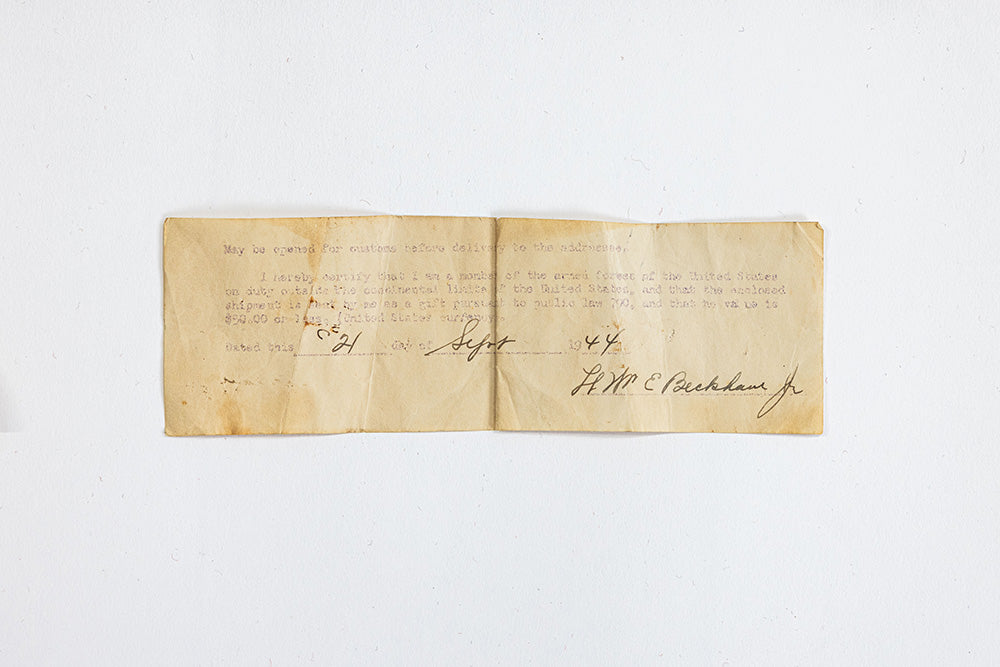 May be opened for customs before delivery to the addressee.
I hereby certify that I am a member of the armed forces of the United States
on duty outside the continental limits of the United States, and that the enclosed
shipment is sent by me as a gift pursuant to public law 790, and that no value is
$50.00 or less. (United States currency.
Dated this 21 day of Sept 1944
Lt Wm E Beckham Jr